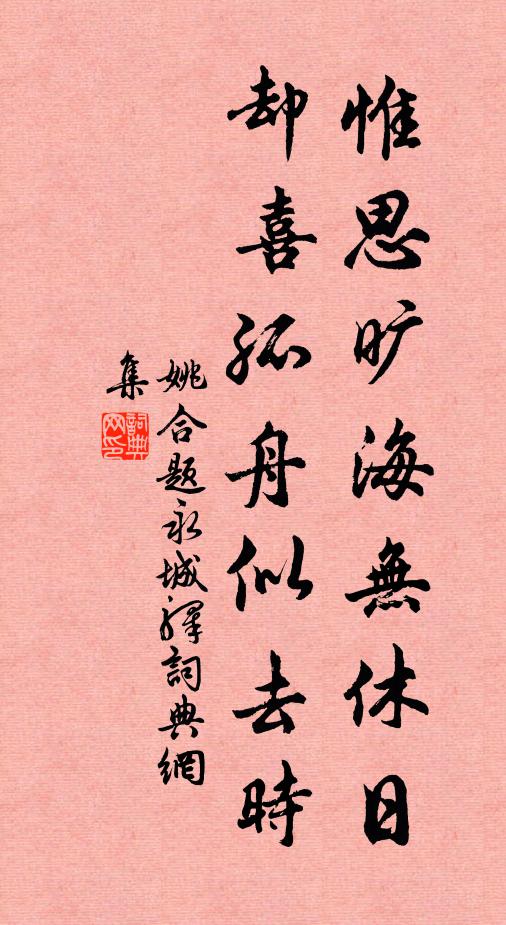 惟思旷海無休日
却喜孤舟似去時
姚合題永城驛詞典網
集
詞典
网印